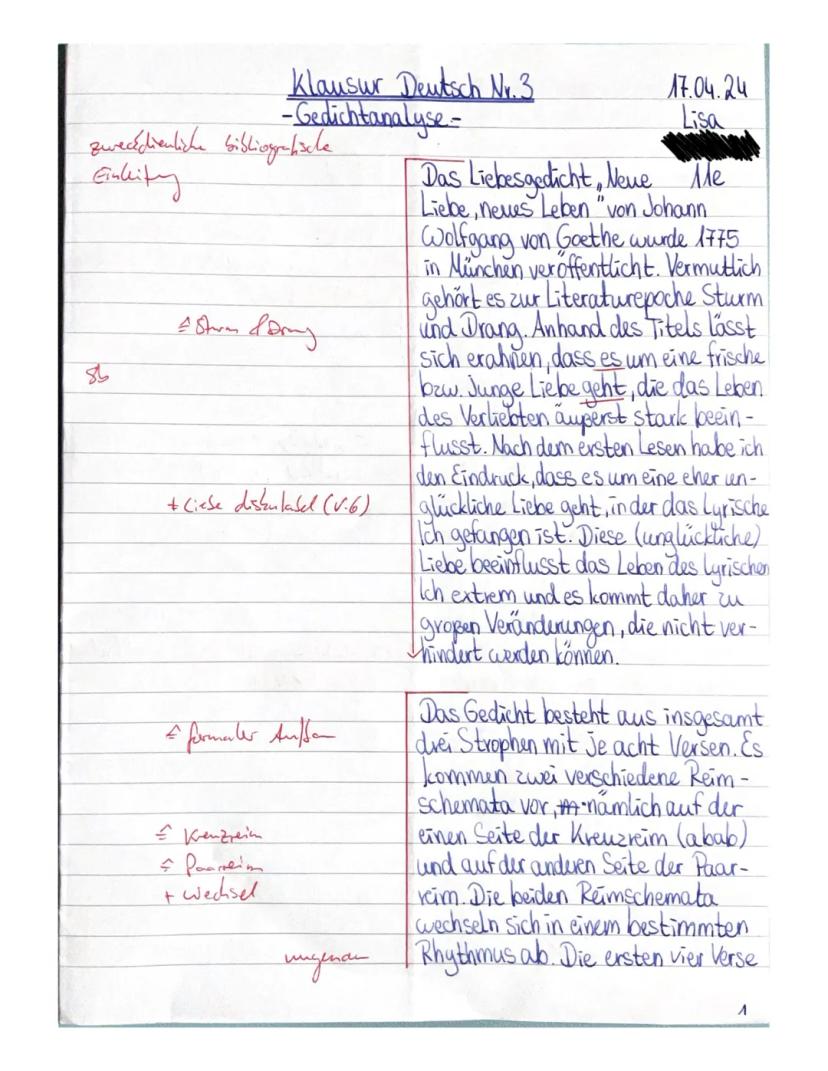 Klausur Deutsch Nr. 3
17.04.24
-Gedichtanalyse-
Lisa
zweckdienliche bibliografische
Einleitung
11e
Das Liebesgedicht „Neue
Liebe, neues Leben" von Johann
Wolfgang von Goethe wurde 1775
in München veröffentlicht. Vermutlich
gehört es zur Literaturepoche Sturm
≙ Sturm & Drang
und Drang. Anhand des Titels lässt
sich erahnen, dass es um eine frische
Sb
bzw. Junge Liebe geht, die das Leben
des Verliebten äußerst stark beein-
flusst. Nach dem ersten Lesen habe ich
den Eindruck, dass es um eine eher un-
+ Liebe (V. 6)
glückliche Liebe geht, in der das Lyrische
Ich gefangen ist. Diese (unglückliche)
Liebe beeinflusst das Leben des Lyrischen
Ich extrem und es kommt daher zu
großen Veränderungen, die nicht ver-
hindert werden können.
Das Gedicht besteht aus insgesamt
≙ formaler Aufbau
drei Strophen mit je acht Versen. Es
kommen zwei verschiedene Reim-
schemata vor, nämlich auf der
≙ Kreuzreim
einen Seite der Kreuzreim (abab)
≙ Paarreim
und auf der anderen Seite der Paar-
+ Wechsel
reim. Die beiden Reimschemata
wechseln sich in einem bestimmten
ungenau
Rhythmus ab. Die ersten vier Verse
1